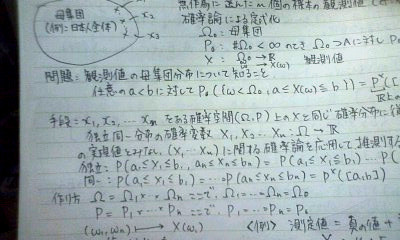 母集団
(例:日本人全体)
x₂
x₃
無作為に選んだ n個の標本の観測値
確率論による定式化
Ω₀: 母集団
P₀: #Ω₀<∞ のとき Ω₀⊃Aに対し P₀
X: Ω₀→ℝ 観測値
X(ω)
問題: 観測値の母集団分布について知ること
任意の a<b に対して P₀({ω∈Ω₀, a≤X(ω)≤b}) = P^X([
手段= x₁, x₂, … xₙ をある確率空間(Ω, P)上の Xと同じ確率分布に従
独立同一分布の確率変数 X₁, X₂ … Xₙ: Ω→ℝ
の実現値とみなし、(X₁, … Xₙ)に関する確率論を応用して推測する
独立: P(a₁≤X₁≤b₁, … aₙ≤Xₙ≤bₙ) = P(a₁≤X₁≤b₁) … P(
同一: P(a₁≤X₁≤b₁) = … = P^X([a,b])
作り方 Ω = Ω₁×…Ωₙ ここで Ω₁=…=Ωₙ=Ω₀
P = P₁×…×Pₙ ここで P₁=…=Pₙ=P₀
(ω₁, ωₙ) ⟼ X(ω₁) <例> 測定値 = 真の値 +